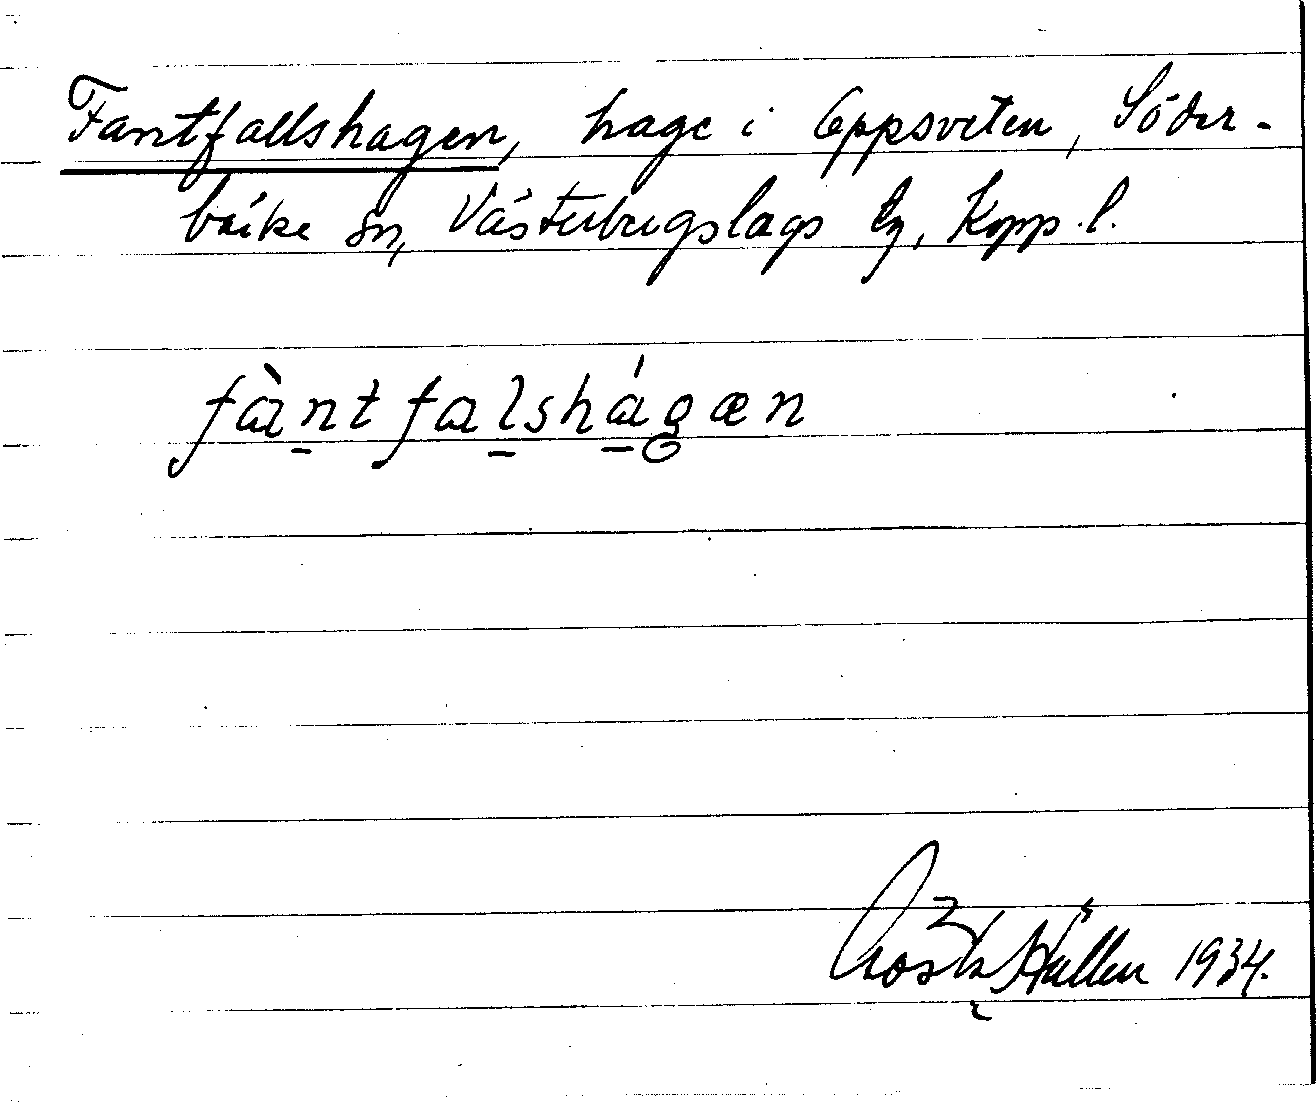 Fantfallshagen, hage i Oppsveten, Söder-
bärke sn, Västerbergslags tg, Kopp. l.
fàntfalshágæn
Gösta Hällen 1934.